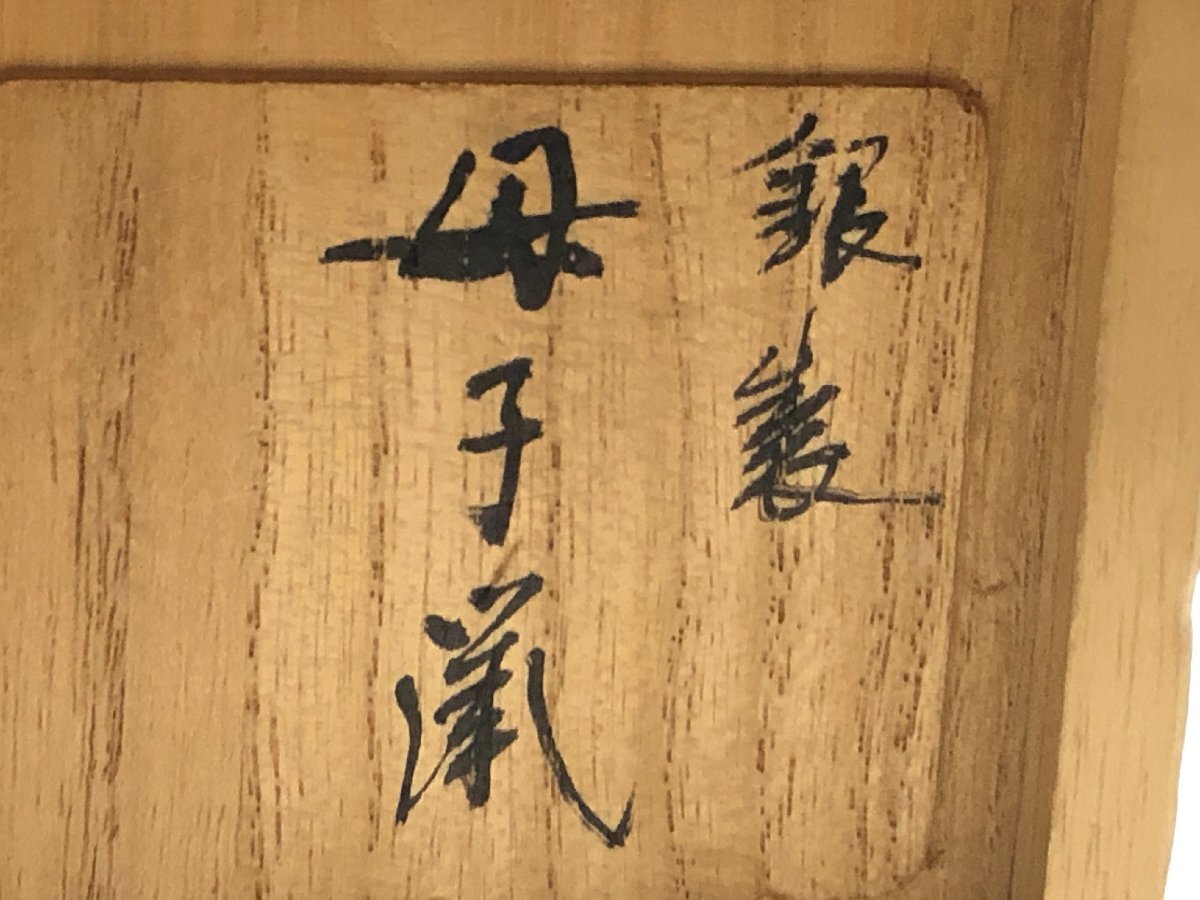 銀製
母子